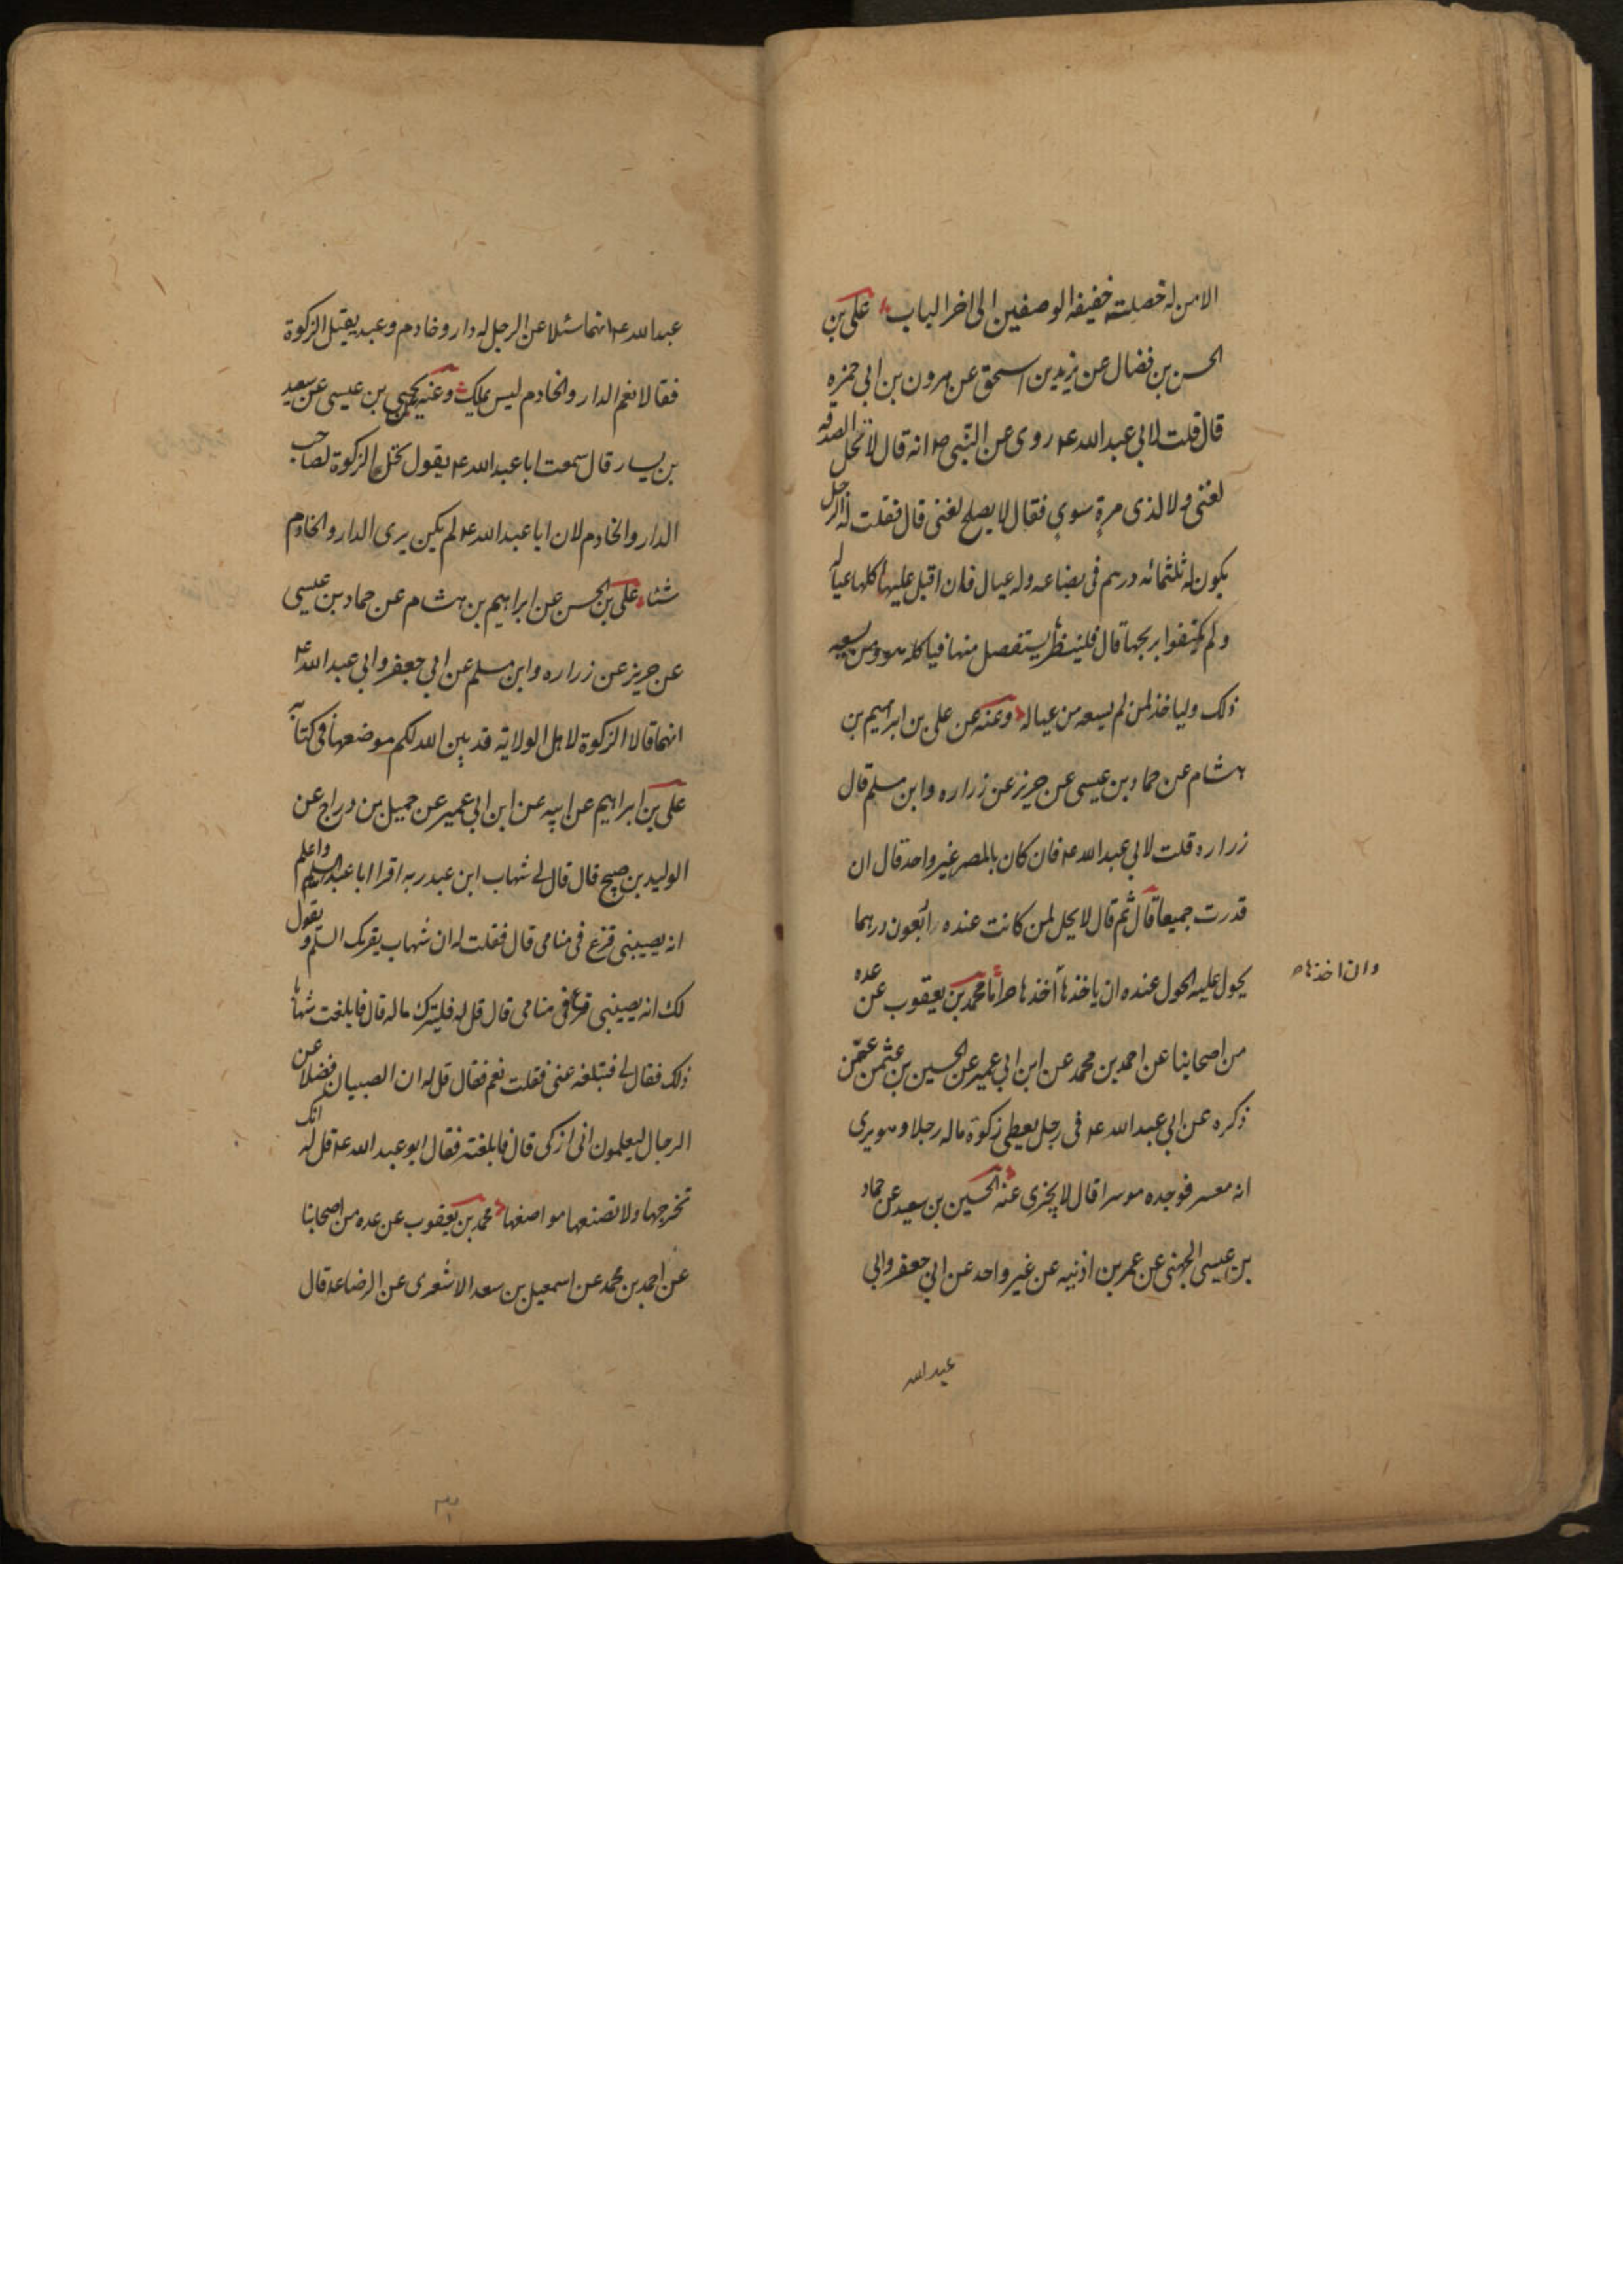 الامن له خصلته خفيفة الوصفين الى اخر الباب علی بن
الحسن بن فضال عن يزيد بن اسحق عن هرون بن ابی حمزه
قال قلت لابی عبد الله ع روی عن النبی ص انه قال لا تحل الصدقه
لغنی ولا لذی مرة سوی فقال لا يصلح لغنی قال فقلت له الرجل
يكون له ثلثمائه درهم فی بضاعه وله عيال فان اقبل عليها اكلها عياله
ولم يكتفوا بربحها قال فلينظر يستفصل منها فياكله هو ومن يسعه
ذلك ولياخذ لمن لم يسعه من عياله وعنه عن علی بن ابراهيم بن
هشام عن حماد بن عيسی عن حريز عن زراره وابن مسلم قال
زراره قلت لابی عبد الله ع فان كان بالمصر غير واحد قال ان
قدرت جميعا قال ثم قال لا يحل لمن كانت عنده رابعون درهما
يحول عليه الحول عنده ان ياخذها اخذها حراما محمد بن يعقوب عن عده
وان اخذها ص
من اصحابنا عن احمد بن محمد عن ابن ابی عمير عن الحسين بن عثمن عمن
ذكره عن ابی عبد الله ع فی رجل يعطی زكوة ماله رجلا وهو يری
انه معسر فوجده موسرا قال لا يجزی عنه الحسين بن سعيد عن حماد
بن عيسی الجهنی عن عمر بن اذنيه عن غير واحد عن ابی جعفر وابی
عبد الله
عبد الله ع انهما سئلا عن الرجل له دار وخادم وعبد يقبل الزكوة
فقالا نعم الدار والخادم ليس بملك وعنه يحيی بن عيسی عن سعيد
بن يسار قال سمعت ابا عبد الله ع يقول تحل الزكوة لصاحب
الدار والخادم لان ابا عبد الله ع لم يكن يری الدار والخادم
شئا علی بن الحسن عن ابراهيم بن هشام عن حماد بن عيسی
عن حريز عن زراره وابن مسلم عن ابی جعفر وابی عبد الله ع
انهما قالا الزكوة لاهل الولاية قد بين الله لكم موضعها فی كتابه
علی بن ابراهيم عن ابيه عن ابن ابی عمير عن جميل بن دراج عن
الوليد بن صبيح قال قال لی شهاب ابن عبد ربه اقرا ابا عبد الله السلم واعلم
انه يصيبنی فزع فی منامی قال فقلت له ان شهاب يقرئك السلم ويقول
لك انه يصيبنی فزع فی منامی قال قل له فليزك ماله قال فابلغت شهابا
ذلك فقال لی فتبلغه عنی فقلت نعم فقال قل له ان الصبيان فضلا عن
الرجال ليعلمون انی ازكی قال فابلغته فقال ابو عبد الله ع قل له انك
تخرجها ولا تضعها مواضعها محمد بن يعقوب عن عده من اصحابنا
عن احمد بن محمد عن اسمعيل بن سعد الاشعری عن الرضا ع قال